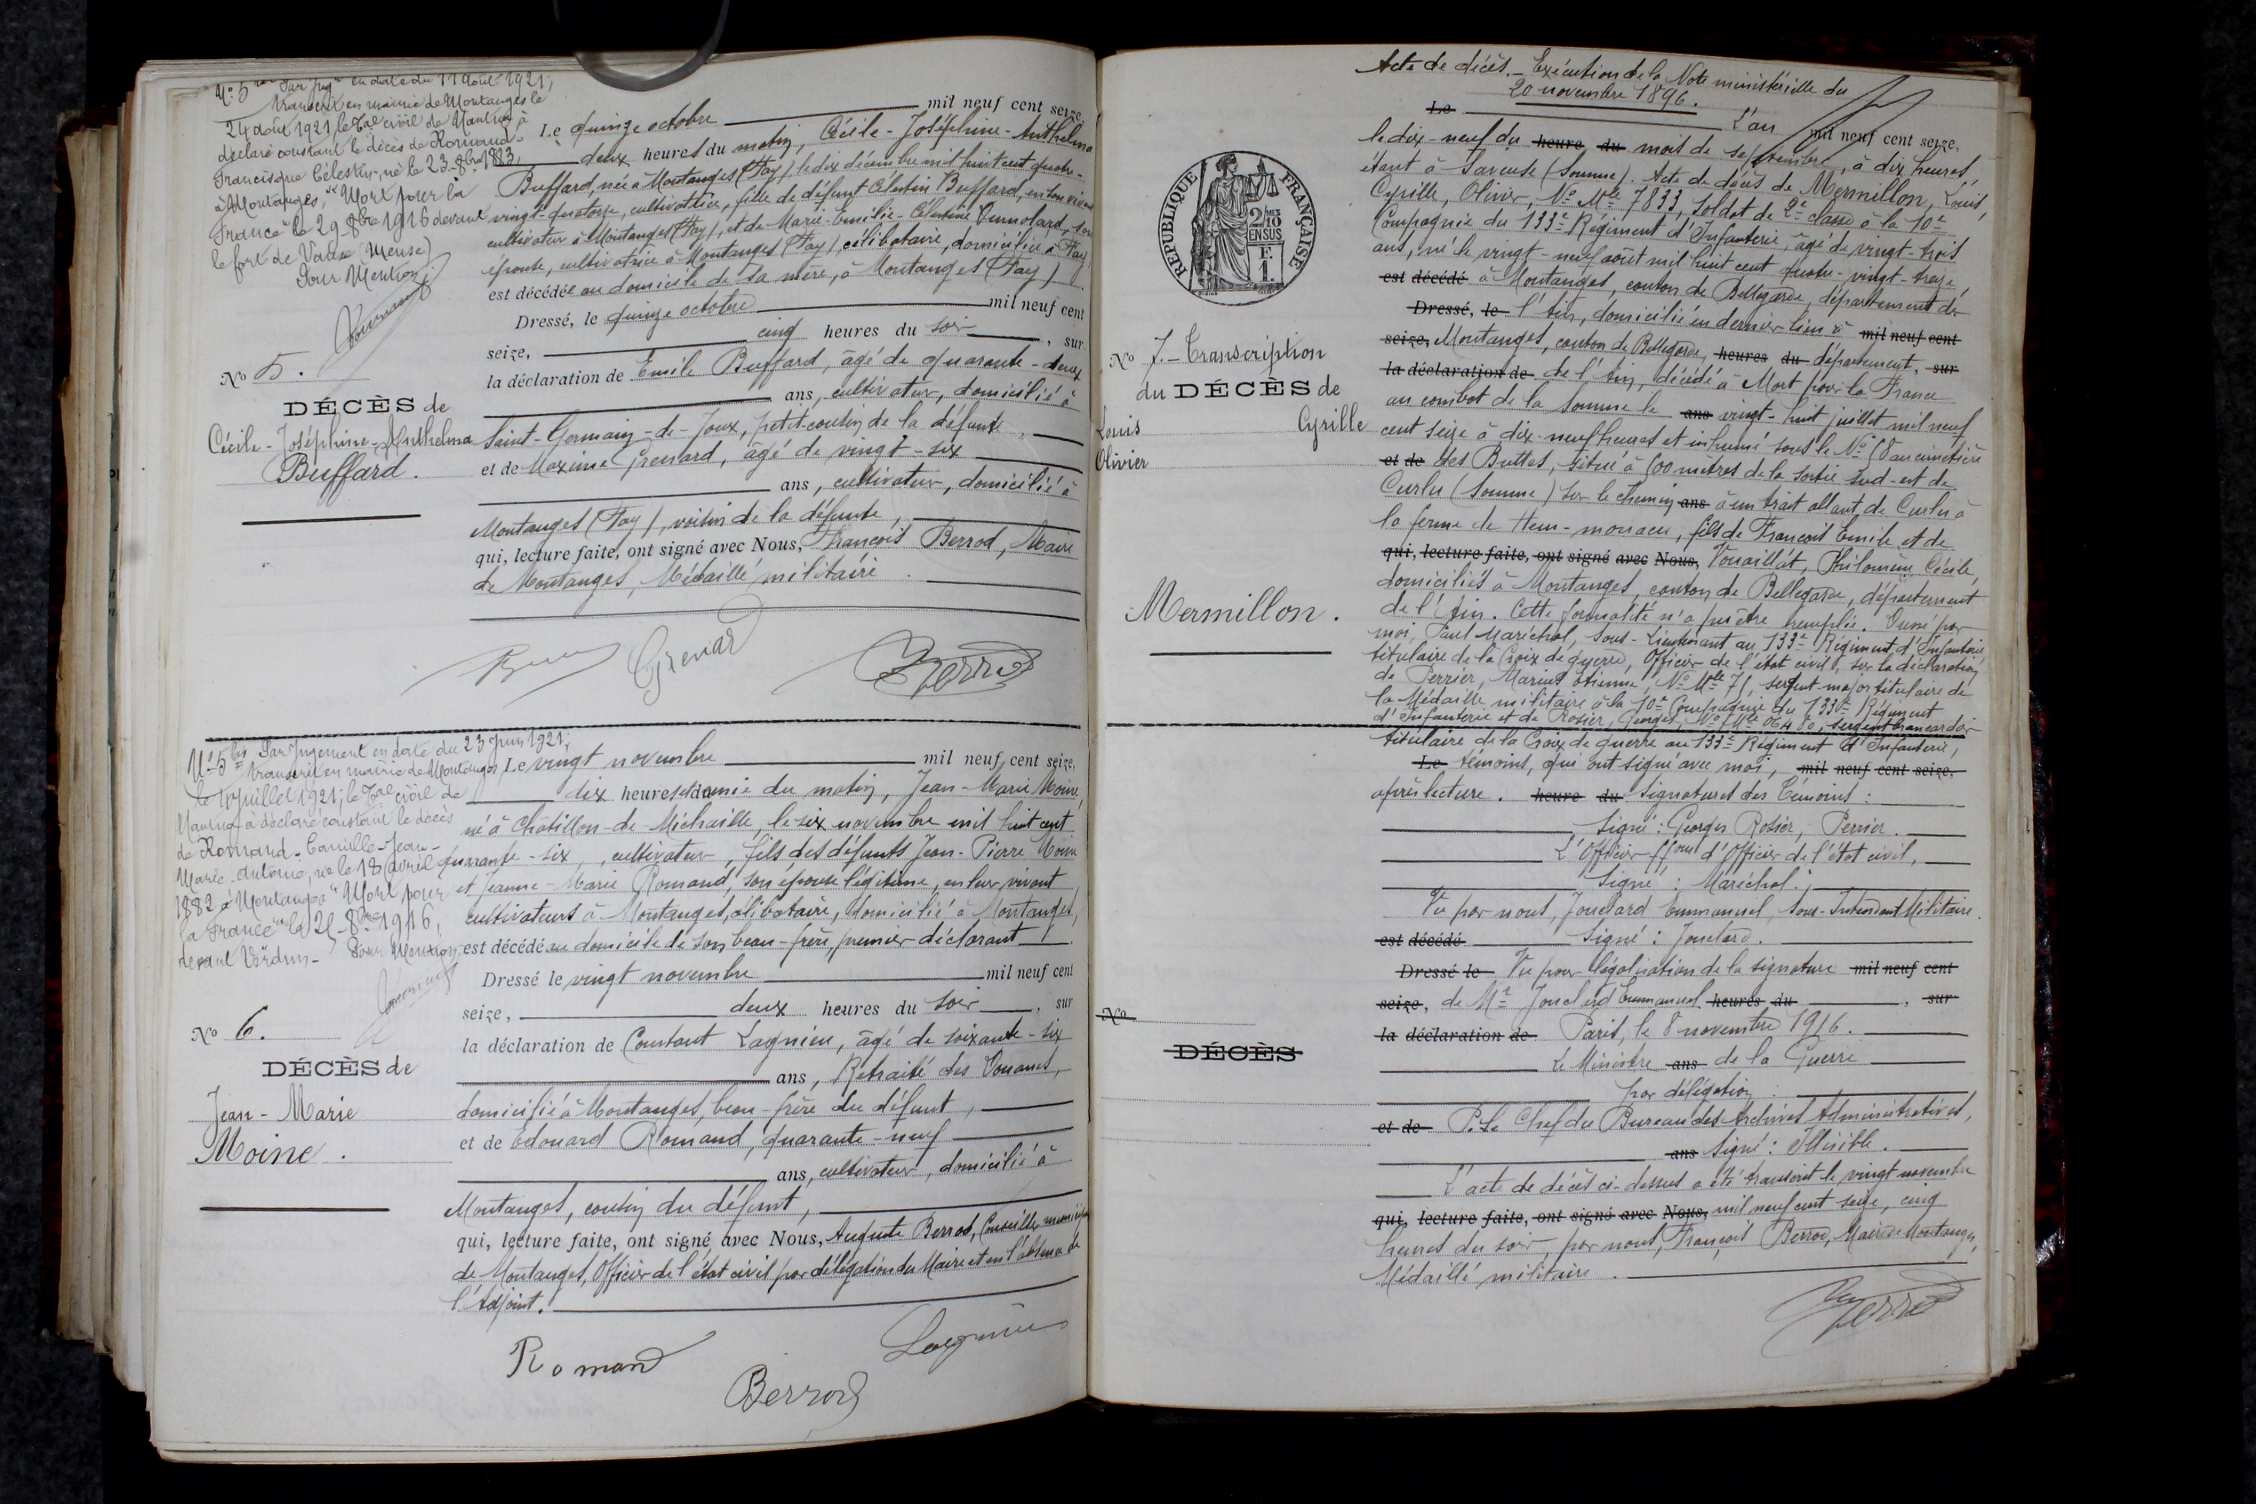 Nº 5 bis Par jugt en date du 11 août 1921,
transcrit en mairie de Montanges le
24 août 1921, le Tal civil de Nantua a
déclaré constant le décès de Romand
Francisque Célestin, né le 23 8bre 1883,
à Montanges, "Mort pour la
France" le 29 8bre 1916 devant
le fort de Vaux (Meuse)
Pour Mention
Nº 5.
DÉCÈS de
Cécile-Joséphine-Anthelma
Buffard.
Le quinze octobre mil neuf cent seize,
deux heures du matin, Cécile-Joséphine-Anthelma
Buffard, née à Montanges (Fay) le dix décembre mil huit cent quatre-
vingt-quatorze, cultivatrice, fille de défunt Célestin Buffard, en son vivant
cultivateur à Montanges (Fay), et de Marie-Emilie-Célestine son
épouse, cultivatrice à Montanges (Fay), célibataire, domiciliée à Fay,
est décédée au domicile de sa mère, à Montanges (Fay)
Dressé, le quinze octobre mil neuf cent
seize, cinq heures du soir, sur
la déclaration de Emile Buffard, âgé de quarante-deux
ans, cultivateur, domicilié à
Saint-Germain-de-Joux, petit-cousin de la défunte,
et de Maxime Grenard, âgé de vingt-six
ans, cultivateur, domicilié à
Montanges (Fay), voisin de la défunte,
qui, lecture faite, ont signé avec Nous, François Berrod, Maire
de Montanges, Médaillé militaire.
Grenard
Berrod
Nº 5 bis Par jugement en date du 23 juin 1921,
transcrit en mairie de Montanges
le juillet 1921, le Tal civil de
Nantua a déclaré constant le décès
de Romand-Camille-Jean-
Marie-Antoine, né le 18 avril
1882 à Montanges "Mort pour
la France" le 8bre 1916,
devant Verdun- Pour Mention
Nº 6.
DÉCÈS de
Jean-Marie
Moine.
Le vingt novembre mil neuf cent seize,
dix heures du matin, Jean-Marie Moine,
né à Châtillon-de-Michaille, le six novembre mil huit cent
quarante-six, cultivateur, fils des défunts Jean-Pierre Moine
et Jeanne-Marie Romand, son épouse légitime, en leur vivant
cultivateurs à Montanges, célibataire, domicilié à Montanges,
est décédé au domicile de son beau-frère, premier déclarant
Dressé le vingt novembre mil neuf cent
seize, deux heures du soir, sur
la déclaration de Constant Lagnieu, âgé de soixante-six
ans, Retraité des Douanes,
domicilié à Montanges, beau-frère du défunt,
et de Edouard Romand, quarante-neuf
ans, cultivateur, domicilié à
Montanges, cousin du défunt,
qui, lecture faite, ont signé avec Nous, Auguste Berrod, Conseiller municipal
de Montanges, Officier de l'état civil par délégation du Maire et en l'absence de
l'Adjoint.
Romand
Lagnieu
Berrod
RÉPUBLIQUE FRANÇAISE
2 MES
10
EN SUS
1 F.
Nº 7.- Transcription
du DÉCÈS de
Louis Cyrille
Olivier
Mermillon.
Acte de décès.- Exécution de la Note ministérielle du
20 novembre 1896.
Le L'an mil neuf cent seize,
le dix-neuf du heure du mois de septembre, à dix heures,
étant à Saveuse (Somme). Acte de décès de Mermillon, Louis,
Cyrille, Olivier, Nº Mle 7833, soldat de 2e classe à la 10e
Compagnie du 133e Régiment d'Infanterie, âgé de vingt-trois
ans, né le vingt-neuf août mil huit cent quatre-vingt-treize,
est décédé à Montanges, canton de Bellegarde, département de
Dressé, le l'Ain, domicilié en dernier lieu à mil neuf cent
seize, Montanges, canton de Bellegarde, heures du département, sur
la déclaration de de l'Ain, décédé à Mort pour la France
au combat de la Somme le ans vingt-huit juillet mil neuf
cent seize à dix-neuf heures et inhumé sous le Nº 58 au cimetière
et de des Buttes, situé à 500 mètres de la sortie sud-est de
Curlu (Somme) sur le chemin ans à un trait allant de Curlu à
la ferme de Hem-monacu, fils de François Emile et de
qui, lecture faite, ont signé avec Nous, Vouaillat, Philomène Cécile,
domiciliés à Montanges, canton de Bellegarde, département
de l'Ain. Cette formalité n'a pu être remplie. Dressé par
moi, Paul Maréchal, sous-Lieutenant au 133e Régiment d'Infanterie
titulaire de la Croix de guerre, Officier de l'état civil, sur la déclaration
de Perrier, Marius Etienne, Nº Mle 71, sergent-major titulaire de
la Médaille militaire à la 10e Compagnie du 133e Régiment
d'Infanterie et de Rosier, Georges, Nº Mle 06480, sergent brancardier
titulaire de la Croix de guerre au 133e Régiment d'Infanterie,
Le témoins, qui ont signé avec moi, mil neuf cent seize,
après lecture. heure du Signatures des Témoins:
Signé: Georges Rosier, Perrier.
L'Officier ffons d'Officier de l'état civil,
Signé: Maréchal.
Vu par nous, Jouclard Emmanuel, Sous-Intendant Militaire.
est décédé Signé: Jouclard.
Dressé le Vu pour légalisation de la signature mil neuf cent
seize, de Mr Jouclard Emmanuel heures du, sur
la déclaration de Paris, le 8 novembre 1916.
Le Ministre ans de la Guerre
par délégation:
et de P. Le Chef du Bureau des Archives Administratives,
ans Signé: Illisible.
L'acte de décès ci-dessus a été transcrit le vingt novembre
qui, lecture faite, ont signé avec Nous, mil neuf cent seize, cinq
heures du soir, par nous, François Berrod, Maire de Montanges,
Médaillé militaire.
Berrod
Nº
DÉCÈS